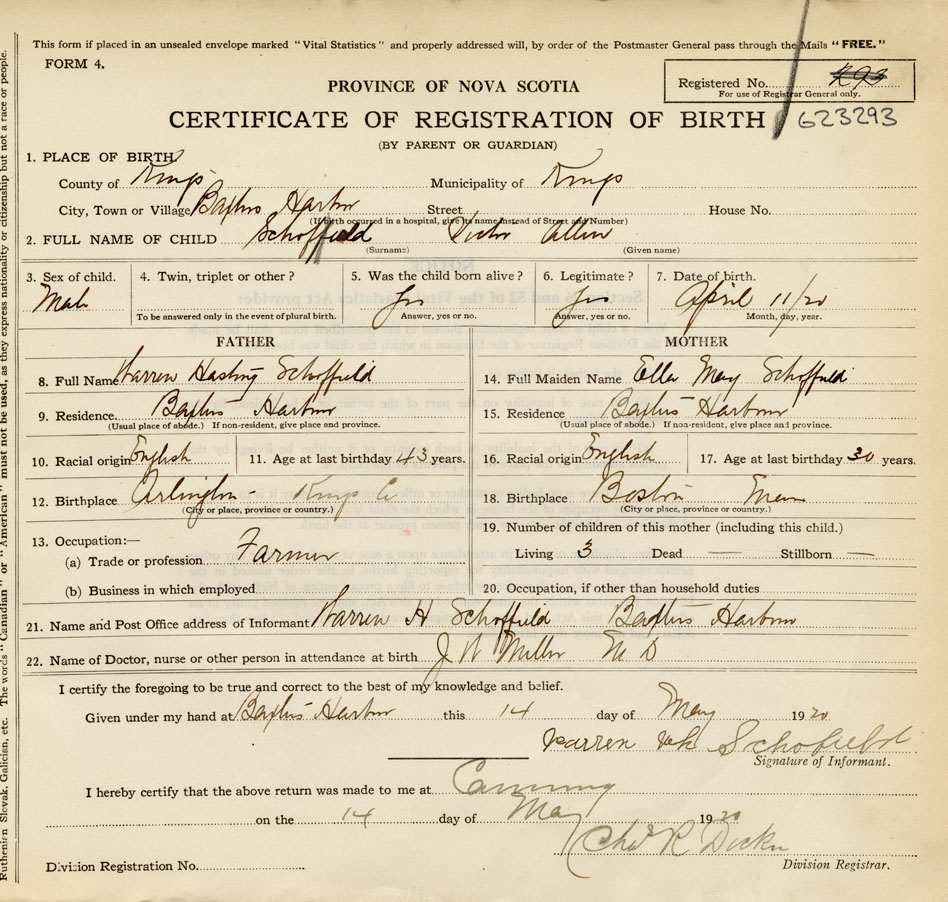 This form if placed in an unsealed envelope marked "Vital Statistics" and properly addressed will, by order of the Postmaster General pass through the Mails "FREE."
FORM 4.
PROVINCE OF NOVA SCOTIA
Registered No. 293
For use of Registrar General only.
CERTIFICATE OF REGISTRATION OF BIRTH
623293
(BY PARENT OR GUARDIAN)
1. PLACE OF BIRTH
County of Kings Municipality of Kings
City, Town or Village Baxters Harbor Street House No.
(If birth occurred in a hospital, give its name instead of Street and Number)
2. FULL NAME OF CHILD Schoffield Victor Allen
(Surname) (Given name)
3. Sex of child. 4. Twin, triplet or other? 5. Was the child born alive? 6. Legitimate? 7. Date of birth.
Male Yes Yes April 11/20
To be answered only in the event of plural birth. Answer, yes or no. Answer, yes or no. Month, day, year.
FATHER
8. Full Name Warren Hasting Schoffield
9. Residence. Baxters Harbour
(Usual place of abode.) If non-resident, give place and province.
10. Racial origin English 11. Age at last birthday 43 years.
12. Birthplace Arlington - Kings Co
(City or place, province or country.)
13. Occupation:—
(a) Trade or profession Farmer
(b) Business in which employed
MOTHER
14. Full Maiden Name Ella May Schoffield
15. Residence Baxters Harbour
(Usual place of abode.) If non-resident, give place and province.
16. Racial origin English 17. Age at last birthday 30 years.
18. Birthplace Boston
(City or place, province or country.)
19. Number of children of this mother (including this child.)
Living 3 Dead — Stillborn —
20. Occupation, if other than household duties
21. Name and Post Office address of Informant Warren H Schoffield Baxters Harbour
22. Name of Doctor, nurse or other person in attendance at birth. J W Miller M D
I certify the foregoing to be true and correct to the best of my knowledge and belief.
Given under my hand at Baxters Harbor this 14 day of May 1920
Warren Schofield
Signature of Informant.
I hereby certify that the above return was made to me at Canning
on the 14 day of May 1920
Chas R Dickie
Division Registration No. Division Registrar.
Ruthenien Slovak, Galician, etc. The words "Canadian" or "American" must not be used, as they express nationality or citizenship but not a race or people.